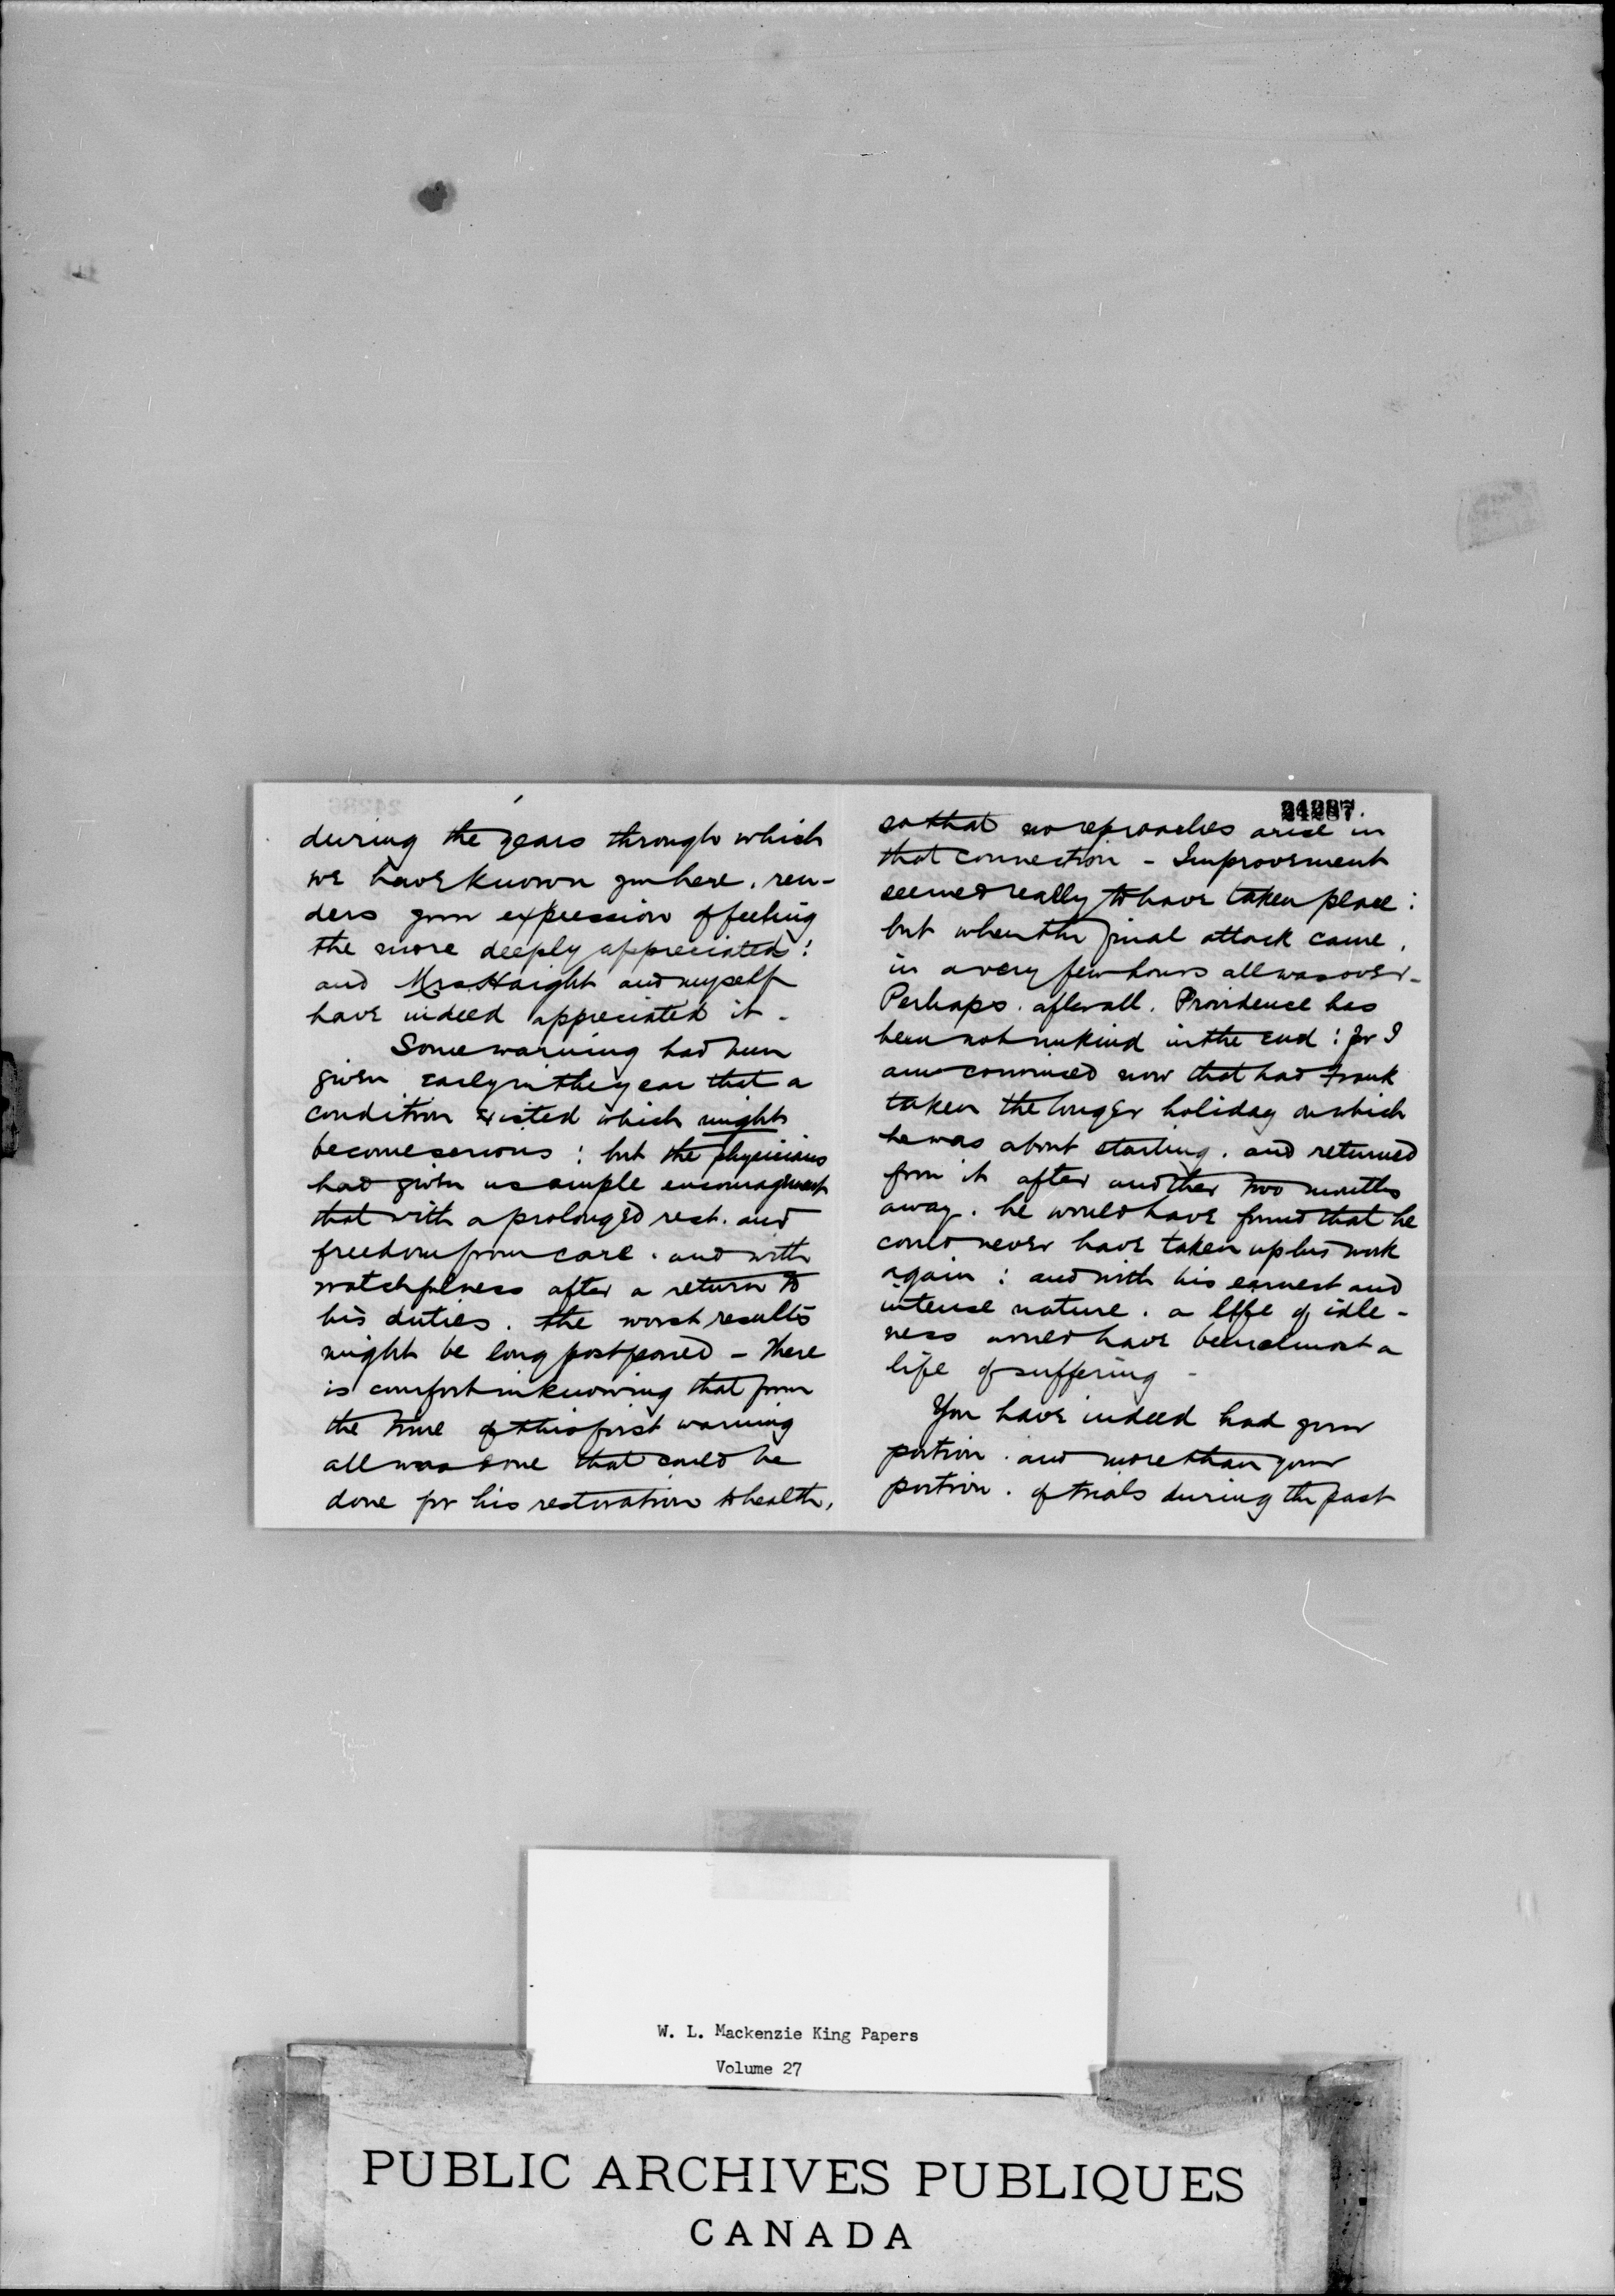 during the years through which
we have known you here, ren-
ders your expression of feeling
the more deeply appreciated:
and Mrs Haight and myself
have indeed appreciated it -
Some warning had been
given early in the year that a
condition existed which might
become serious: but the physicians
had given us ample encouragement
that with a prolonged rest, and
freedom from care, and with
watchfulness after a return to
his duties, the worst results
might be long postponed - There
is comfort in knowing that from
the time of this first warning
all was done that could be
done for his restoration to health,
24287.
so that no reproaches arise in
that connection - Improvement
seemed really to have taken place:
but when the final attack came,
in a very few hours all was over -
Perhaps, after all, Providence has
been not unkind in the end: for I
am convinced now that had Frank
taken the longer holiday on which
he was about starting, and returned
from it after another two months
away, he would have found that he
could never have taken up his work
again: and with his earnest and
intense nature, a life of idle-
ness would have been almost a
life of suffering -
You have indeed had your
portion, and more than your
portion, of trials during the past
W. L. Mackenzie King Papers
Volume 27
PUBLIC ARCHIVES PUBLIQUES
CANADA